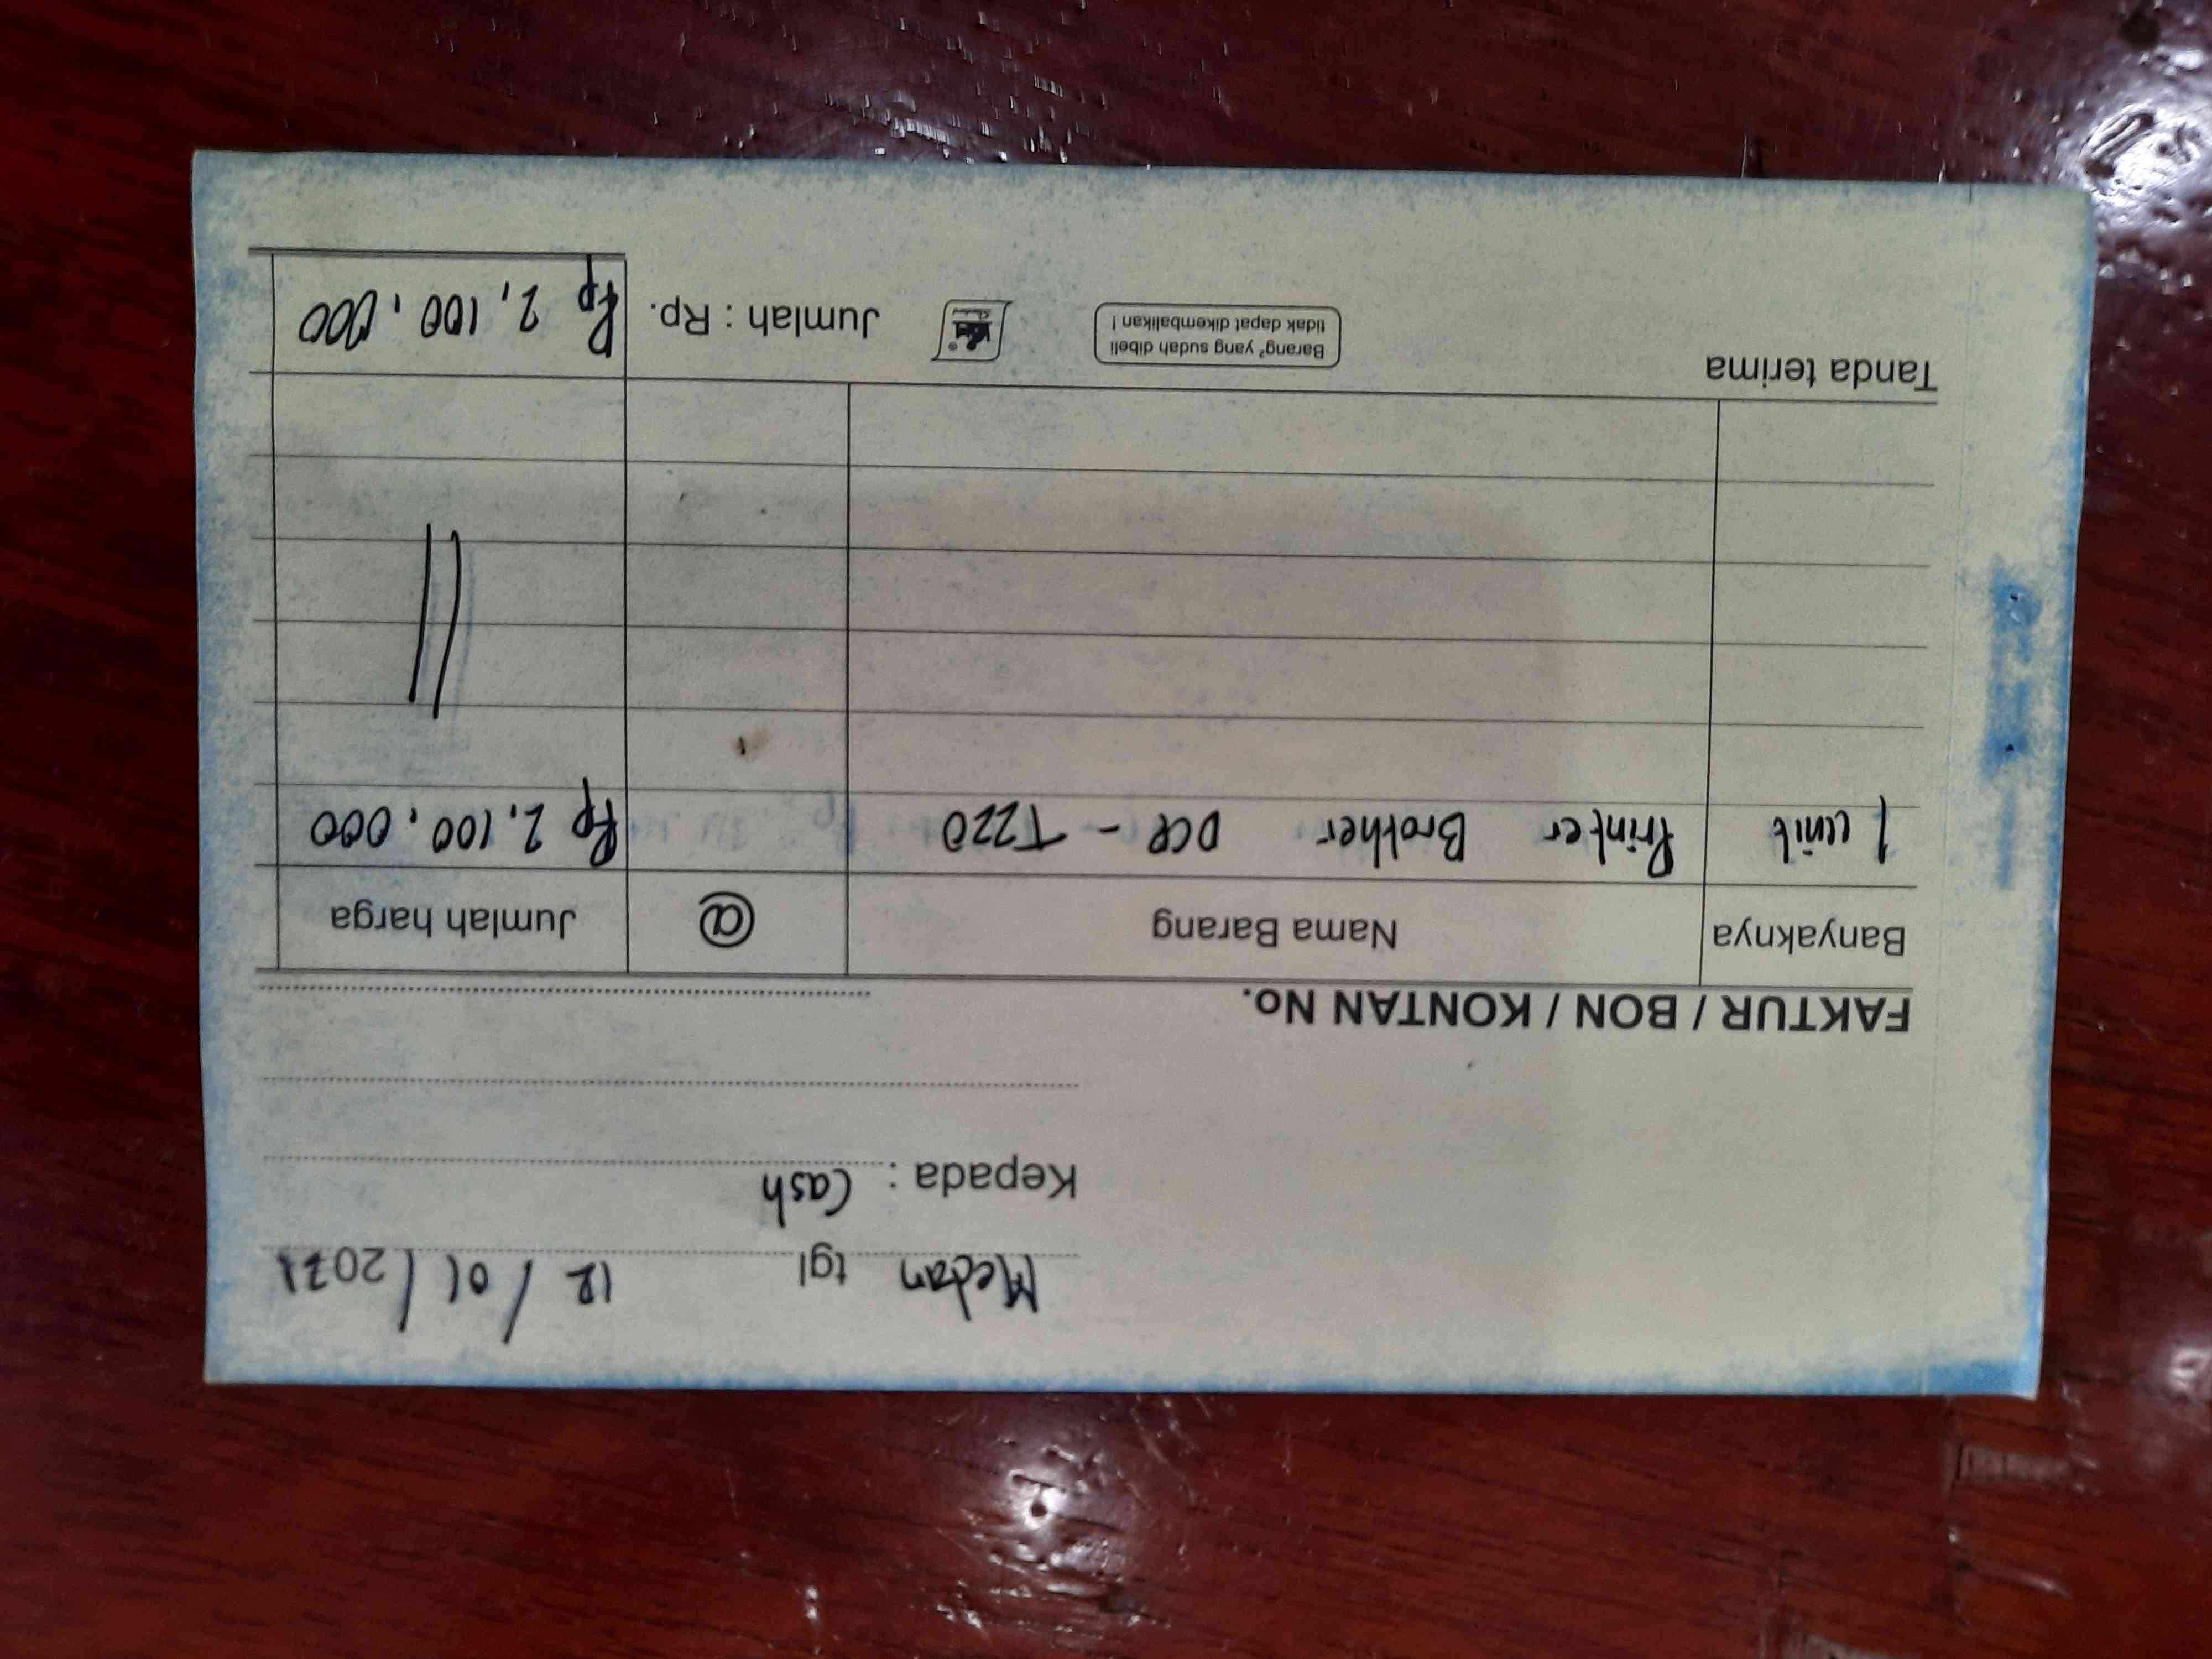 Medan tgl 12/01/2021
Kepada : Cash
FAKTUR / BON / KONTAN No.
Banyaknya Nama Barang @ Jumlah harga
1 unit Printer Brother DCP - T220 Rp 2,100,000
Tanda terima
Barang² yang sudah dibeli
tidak dapat dikembalikan !
Jumlah : Rp. Rp 2,100,000